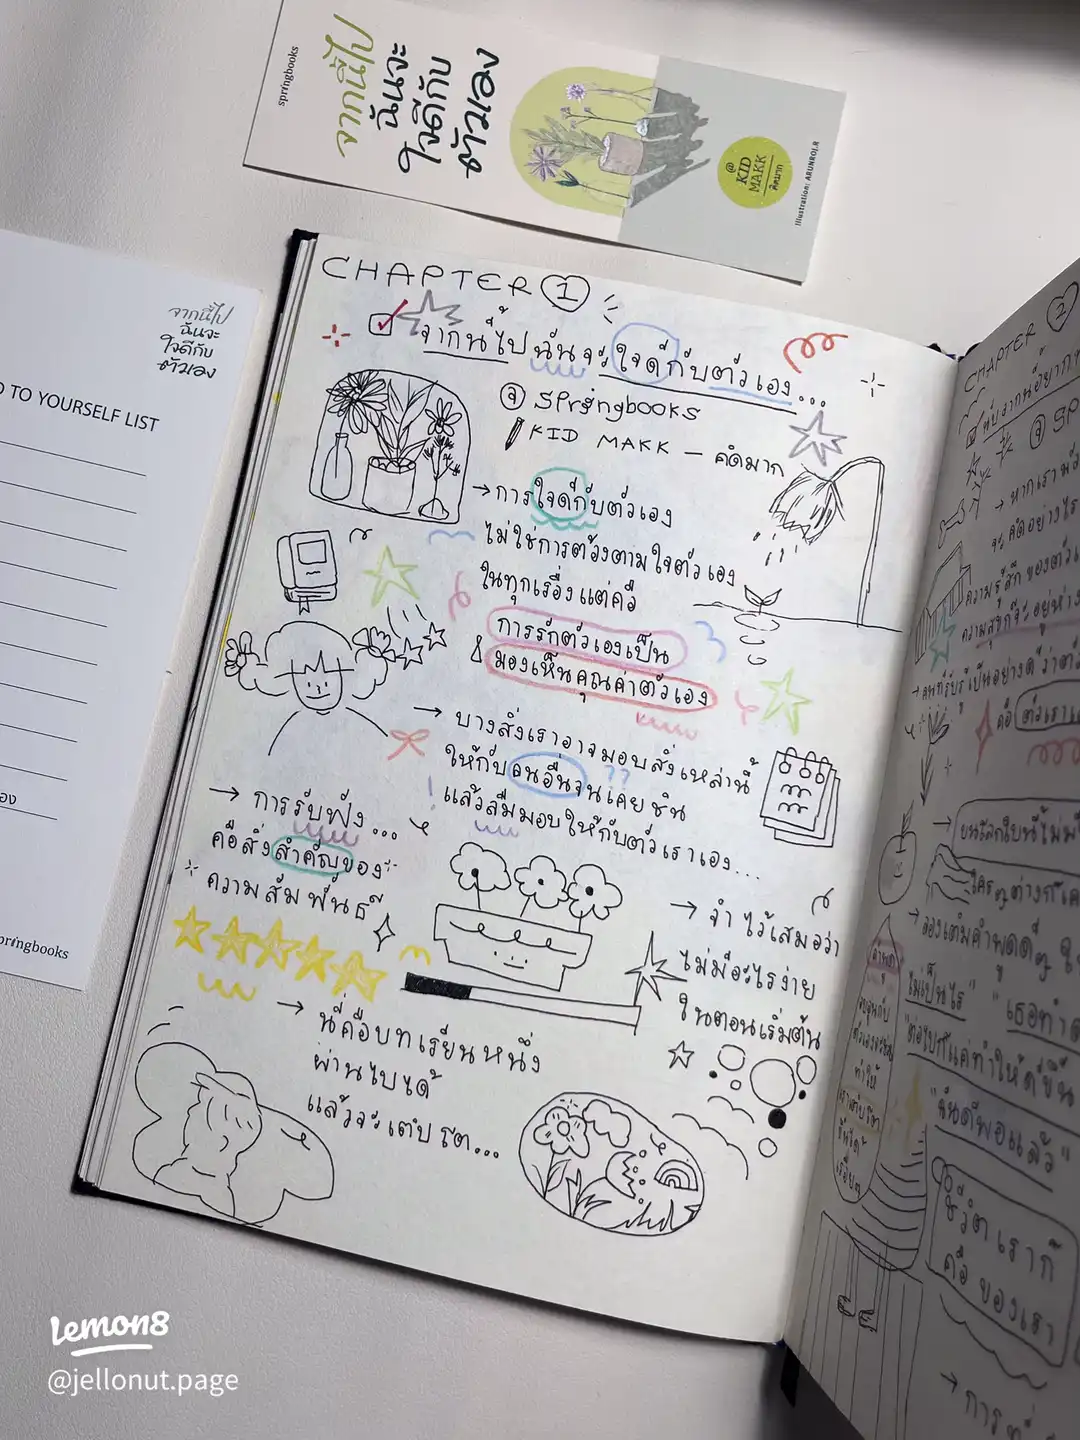 springbooks
จากนี้ไป
ฉันจะ
ใจดีกับ
ตัวเอง
@
KID
MAKK
คิดมาก
Illustration: ARUNROJ.R
จากนี้ไป
ฉันจะ
ใจดีกับ
ตัวเอง
TO YOURSELF LIST
springbooks
CHAPTER 1
จากนี้ไป ฉันจะใจดีกับตัวเอง...
@ springbooks
KID MAKK - คิดมาก
→ การใจดีกับตัวเอง
ไม่ใช่การต้องตามใจตัวเอง
ในทุกเรื่อง แต่คือ
การรักตัวเองเป็น
มองเห็นคุณค่าตัวเอง
→ บางสิ่งเราอาจมอบสิ่งเหล่านี้
ให้กับคนอื่นจนเคยชิน
แล้วลืมมอบให้กับตัวเราเอง...
→ การรับฟัง...
คือสิ่งสำคัญของ
ความสัมพันธ์
→ จำไว้เสมอว่า
ไม่มีอะไรง่าย
ในตอนเริ่มต้น
→ นี่คือบทเรียนหนึ่ง
ผ่านไปได้
แล้วจะเติบโต...
CHAPTER 2
@ SP
→ หากเรา
คิดอย่างไร
ความรู้สึกของตัวเ
คือ ตัวเรา
→ ลองเติมคำพูดดีๆ
"ไม่เป็นไร" "เธอทำ
"ฉันดีพอแล้ว"
ชีวิตเราก็
คือ ของเรา
→ การ
Lemon8
@jellonut.page